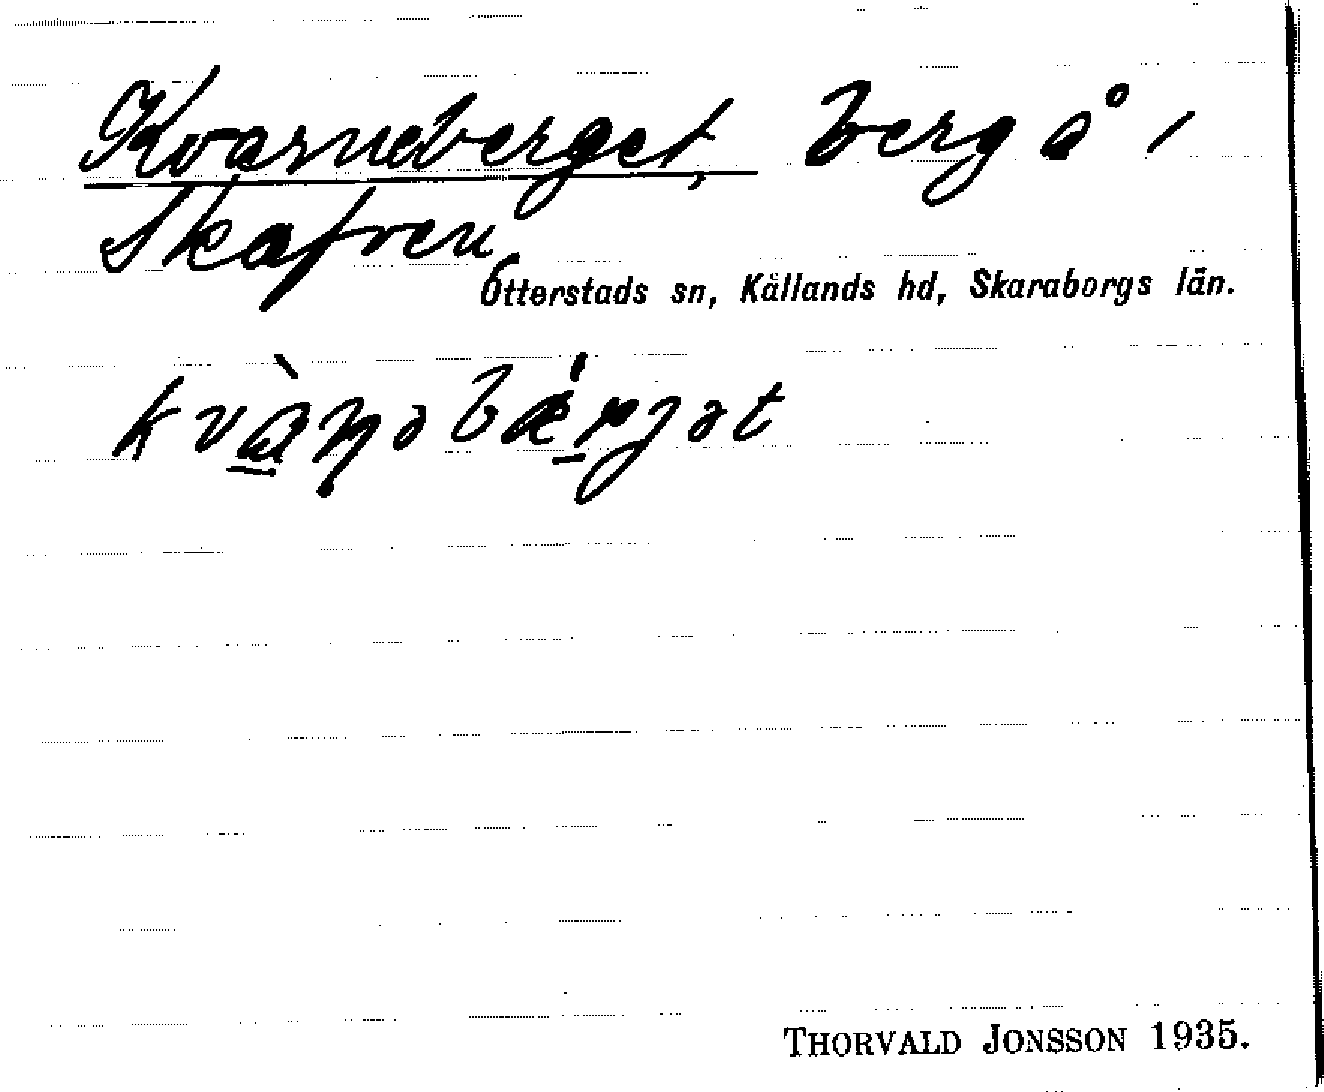 Kvarneberget, berg å 1
Skafven
Otterstads sn, Kållands hd, Skaraborgs län.
kvàṇəbǽrjət
THORVALD JONSSON 1935.